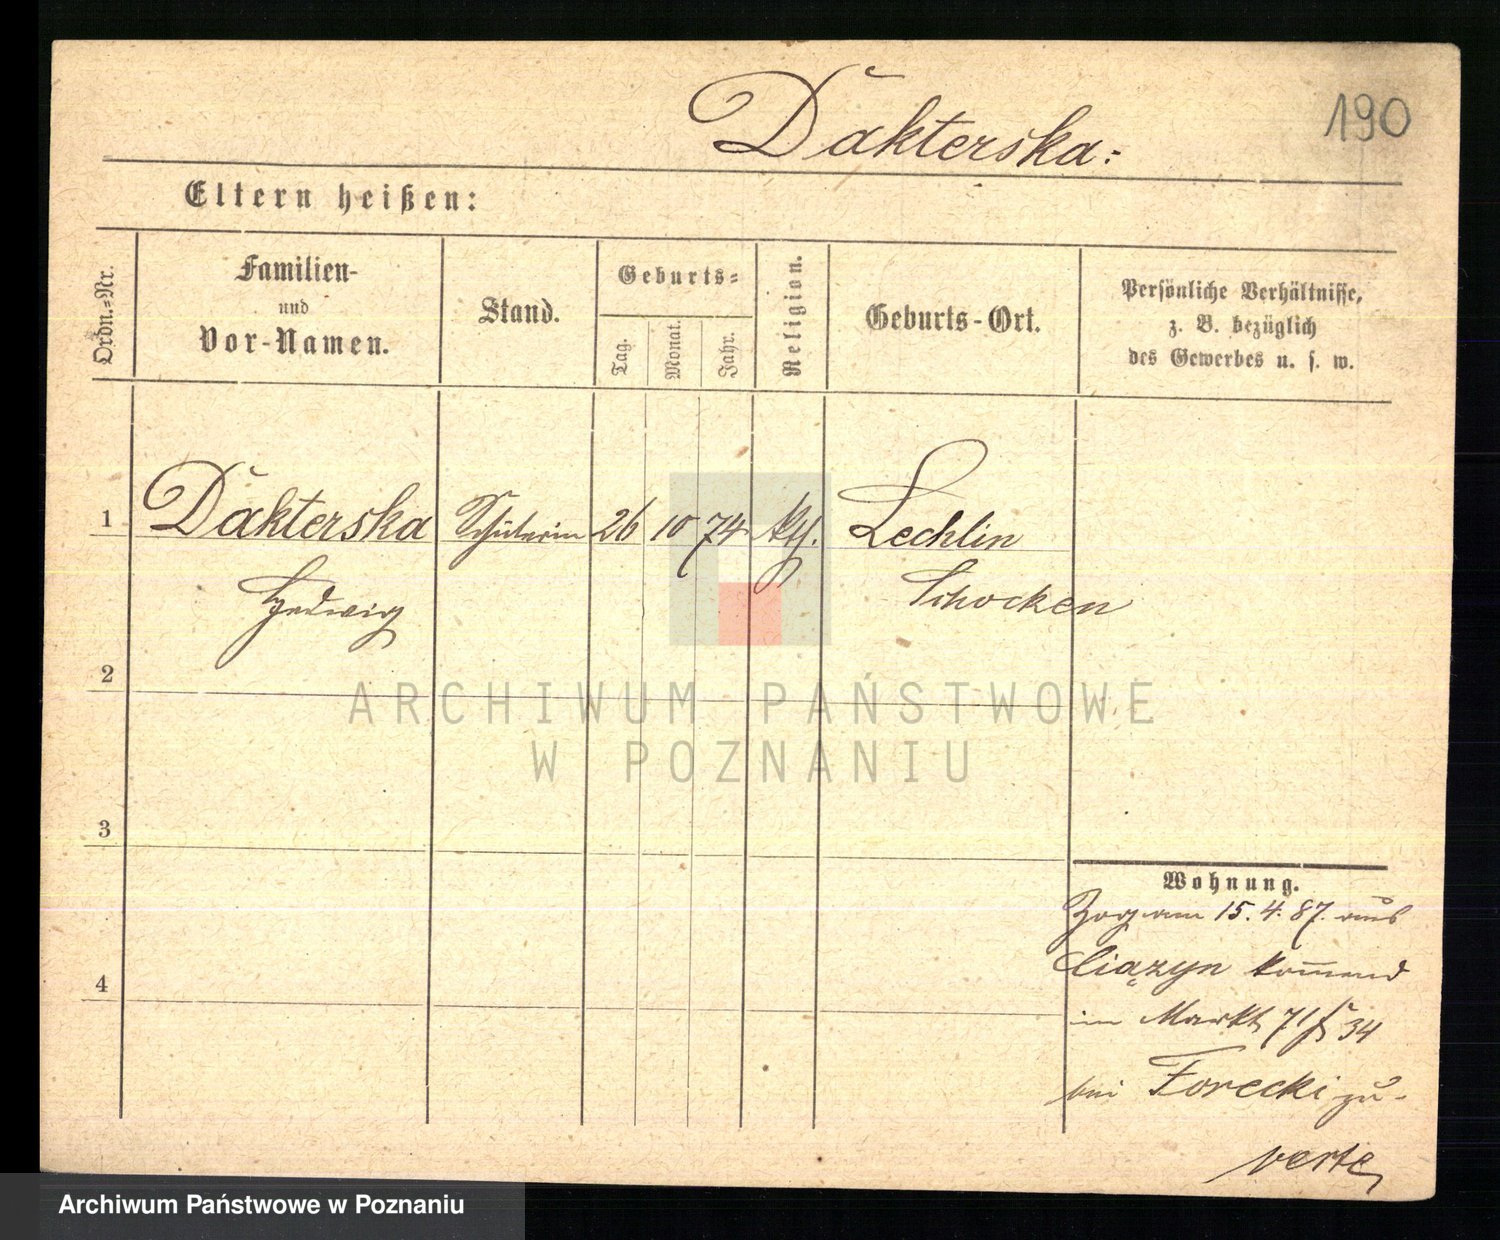 190
Dakterska:
Eltern heißen:
Ordn.-Nr.
Familien-
und
Vor-Namen.
Stand.
Geburts-
Tag.
Monat.
Jahr.
Religion.
Geburts-Ort.
Persönliche Verhältnisse,
z. B. bezüglich
des Gewerbes u. s. w.
1 Dakterska Schülerin 26 10 74 kth. Lechlin
Hedwig Schocken
2
ARCHIWUM PAŃSTWOWE
W POZNANIU
3
Wohnung.
Zog am 15. 4. 87. aus
Ciązyn kom̅end
4
im Markt 71 34
bei Forecki zu-
verte
Archiwum Państwowe w Poznaniu